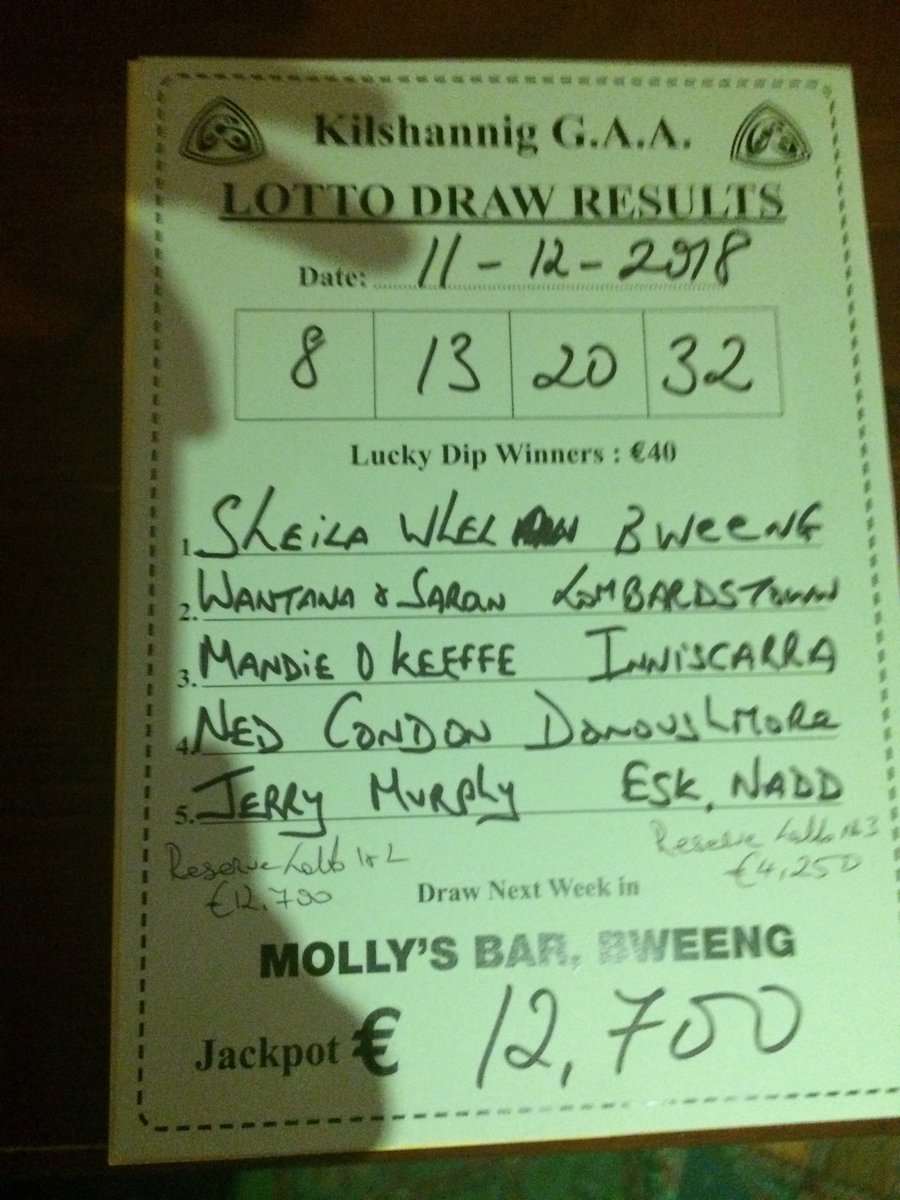 Kilshannig G.A.A.
LOTTO DRAW RESULTS
Date: 11-12-2018
8 13 20 32
Lucky Dip Winners : €40
1. SHEILA WHELAN BWEENG
2. WANTANA & SARON LOMBARDSTOWN
3. MANDIE O KEEFFE INNISCARRA
4. NED CONDON DONOUGHMORE
5. JERRY MURPHY ESK, NADD
Reserve Lotto 1 & 2 Reserve Lotto No 3
€12,700 €4,250
Draw Next Week in
MOLLY'S BAR, BWEENG
Jackpot € 12,700